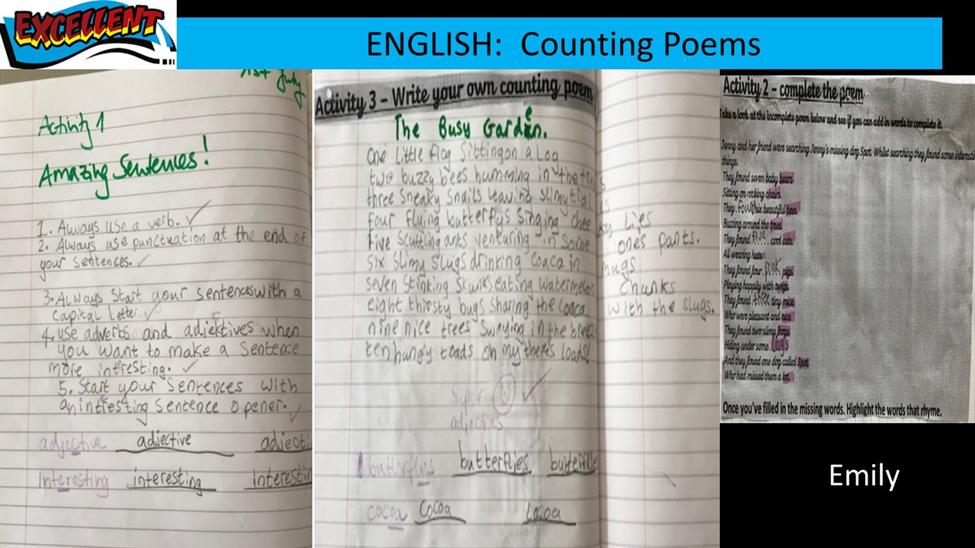 EXCELLENT
ENGLISH: Counting Poems
1st July
Activity 1
Amazing Sentences!
1. Always use a verb.
2. Always use punctuation at the end of
your sentences.
3. Always start your sentences with a
capital letter.
4. use adverbs and adjektives when
you want to make a sentence
more intresting.
5. Start your sentences with
an intresting sentence opener.
adjective adjective adject
interesting interesting interestin
Activity 3 – Write your own counting poem
The Busy Garden.
One little frog sitting on a Log
two buzzy bees humming in the
three sneaky snails leaving slimy
four flying butterflys singing
five scuttling ants venturing in some ones pants.
six slimy slugs drinking coaca in mugs
seven stinking skunks eating watermelon chunks
eight thirsty bugs sharing the coaca with the slugs.
nine nice trees swaying in the
ten hungy toads oh my theres loads!
super
adjectives
butterflies butterflies
cocoa cocoa cocoa
Activity 2 – complete the poem
Take a look at the incomplete poem below and see if you can add in words to complete it.
Jenny and her friend were searching Jenny's missing dog Spot. Whilst searching they found some
things.
They found seven baby bears
Sitting on rocking chairs.
They found six beautiful bees
Buzzing around the
They found cool cats
All wearing hats.
They found four pink pigs
Playing happily with twigs
They found three tiny mice
Who were pleasant and nice
They found two slimy frogs
Hiding under some logs
And they found one dog called Spot
Who had missed them a lot.
Once you've filled in the missing words. Highlight the words that rhyme.
Emily